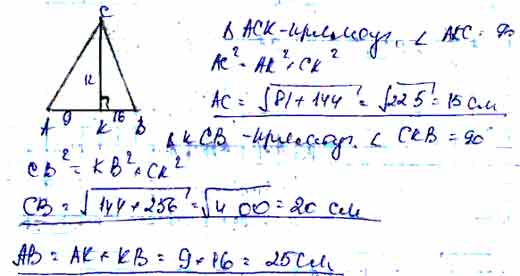 C
12
9 16
A K B
Δ ACK - прямоуг. ∠ AKC = 90
AC² = AK² + CK²
AC = √81 + 144 = √225 = 15 см
Δ KCB - прямоуг. ∠ CKB = 90°
CB² = KB² + CK²
CB = √144 + 256 = √400 = 20 см
AB = AK + KB = 9 + 16 = 25 см